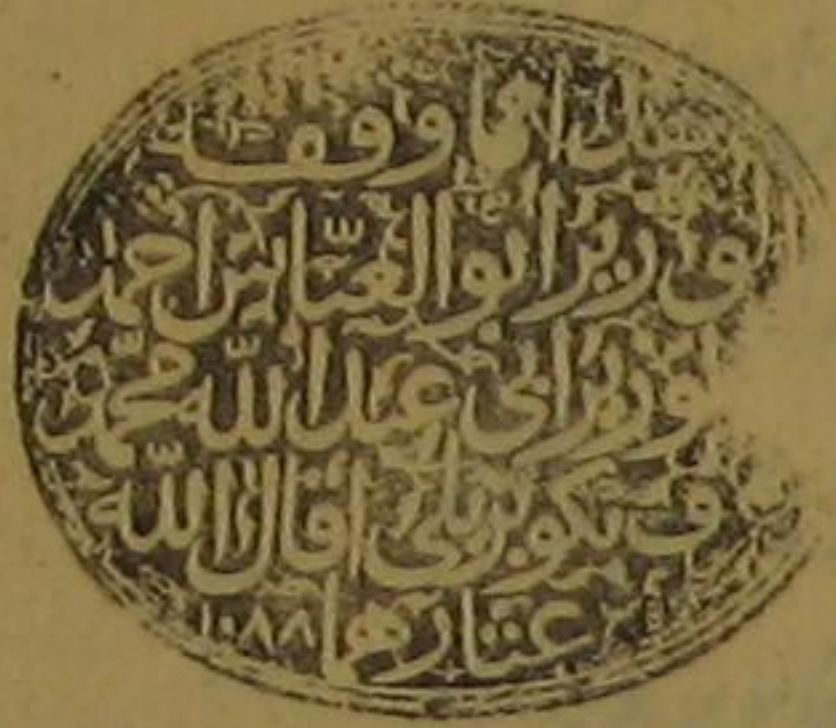 هذا مما وقفه
الوزير ابو العباس احمد
الوزير ابي عبد الله محمد
بكوبريلي اقال الله
عثارهما ١٠٨٨